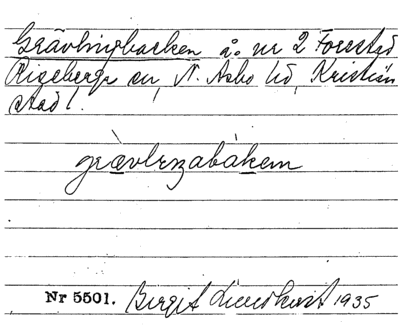 Grävlingbacken å nr 2 Forestad
Riseberga sn, N. Åsbo hd, Kristian
stad l.
grævlɪŋabàkem
Nr 5501. Birgit Lindkvist 1935